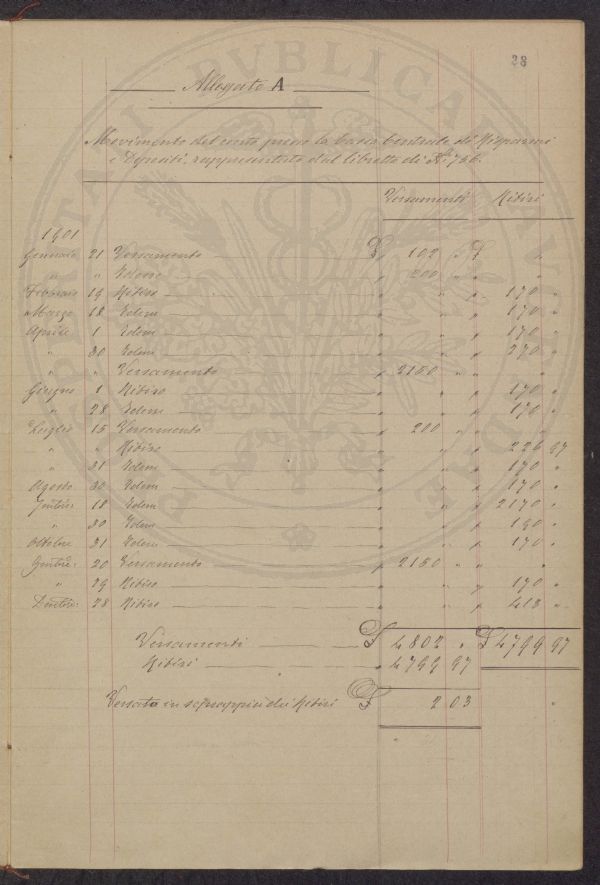 28
Allegato A
Movimento del conto presso la Cassa Centrale di Risparmi
e Depositi, rappresentato dal libretto di N. 766.
Versamenti Ritiri
1901
Gennaio 21 Versamento £ 192 " £ "
" " Idem " 200 " " "
Febbraio 19 Ritiro " " " 170 "
Marzo 18 Idem " " " 170 "
Aprile 1 Idem " " " 170 "
" 30 Idem " " " 270 "
" " Versamento " 2150 " " "
Giugno 1 Ritiro " " " 170 "
" 28 Idem " " " 170 "
Luglio 15 Versamento " 200 " " "
" " Ritiro " " " 226 97
" 31 Idem " " " 170 "
Agosto 30 Idem " " " 170 "
18 Idem " " " 2170 "
" 30 Idem " " " "
Ottobre 31 Idem " " " 170 "
20 Versamento " 2150 " " "
" 29 Ritiro " " " 170 "
28 Ritiro " " " 413 "
Versamenti £ 4802 " £ 4799 97
Ritiri " 4799 97
Versata in soprappiù dei Ritiri £ 2 03
PVBLICAE